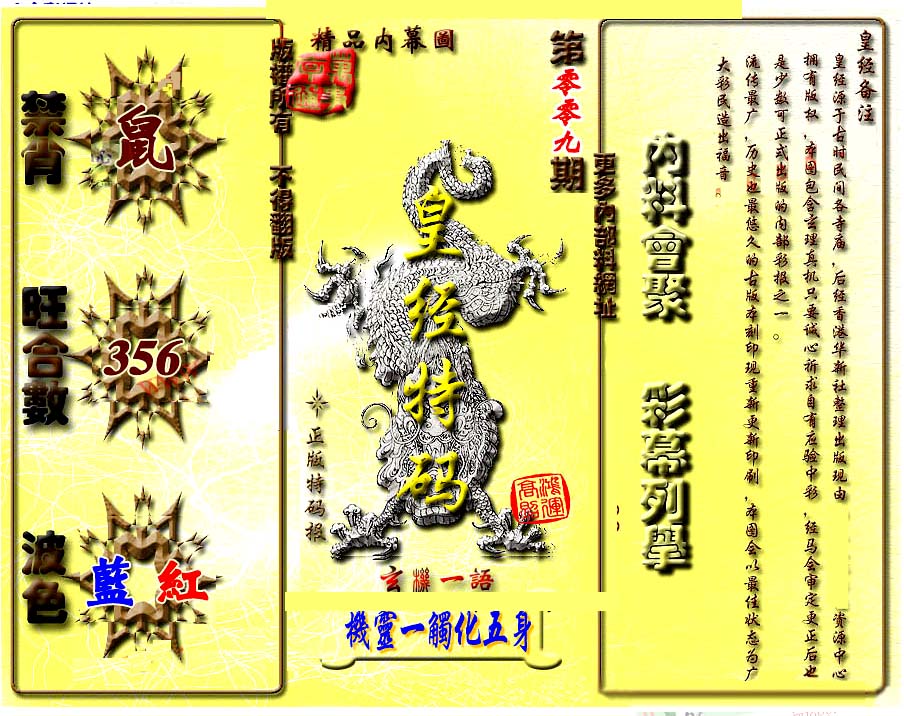 精品内幕圖
第零零九期
版權所有 不得翻版
更多內部料網址
禁肖
鼠
旺合數
356
波色
藍 紅
皇经特码
正版特码报
鴻運高照
玄機一語
機靈一觸化五身
內料會聚 彩幕列舉
皇经备注
皇经源于古时民间各寺庙，后经香港华新社整理出版现由 资源中心
拥有版权，本图包含玄理真机只要诚心祈求自有应验中彩，经马会审定更正后也
是少数可正式出版的内部彩报之一。
流传最广，历史也最悠久的古版本刻印现重新更新印刷，本图会以最佳状态为广
大彩民造出福音